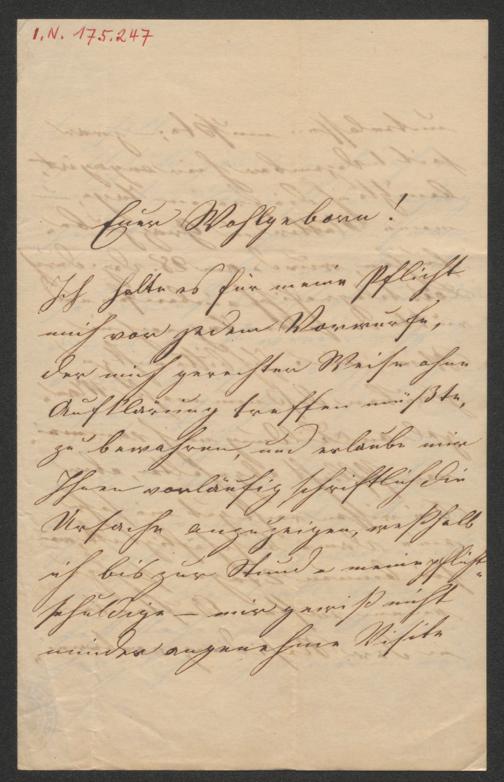 I.N. 175.247
Euer Wohlgeboren!
Ich halte es für meine Pflicht
mich vor jedem Vorwurfe,
der mich gerechter Weise ohne
Aufklärung treffen müßte,
zu bewahren, und erlaube mir
Ihnen vorläufig schriftlich die
Ursache anzuzeigen, weßhalb
ich bis zur Stunde meine pflicht-
schuldige – mir gewiß nicht
minder angenehme Visite